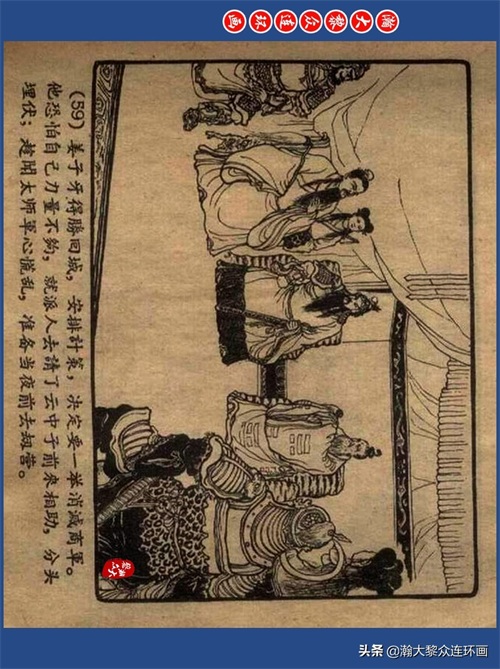 瀚大黎众连环画
(59) 姜子牙得勝回城，安排計策，决定要一举消滅商軍。
他恐怕自己力量不夠，就派人去請了云中子前来相助，分头
埋伏；趁聞太师軍心慌乱，准备当夜前去刼营。
头条 @瀚大黎众连环画